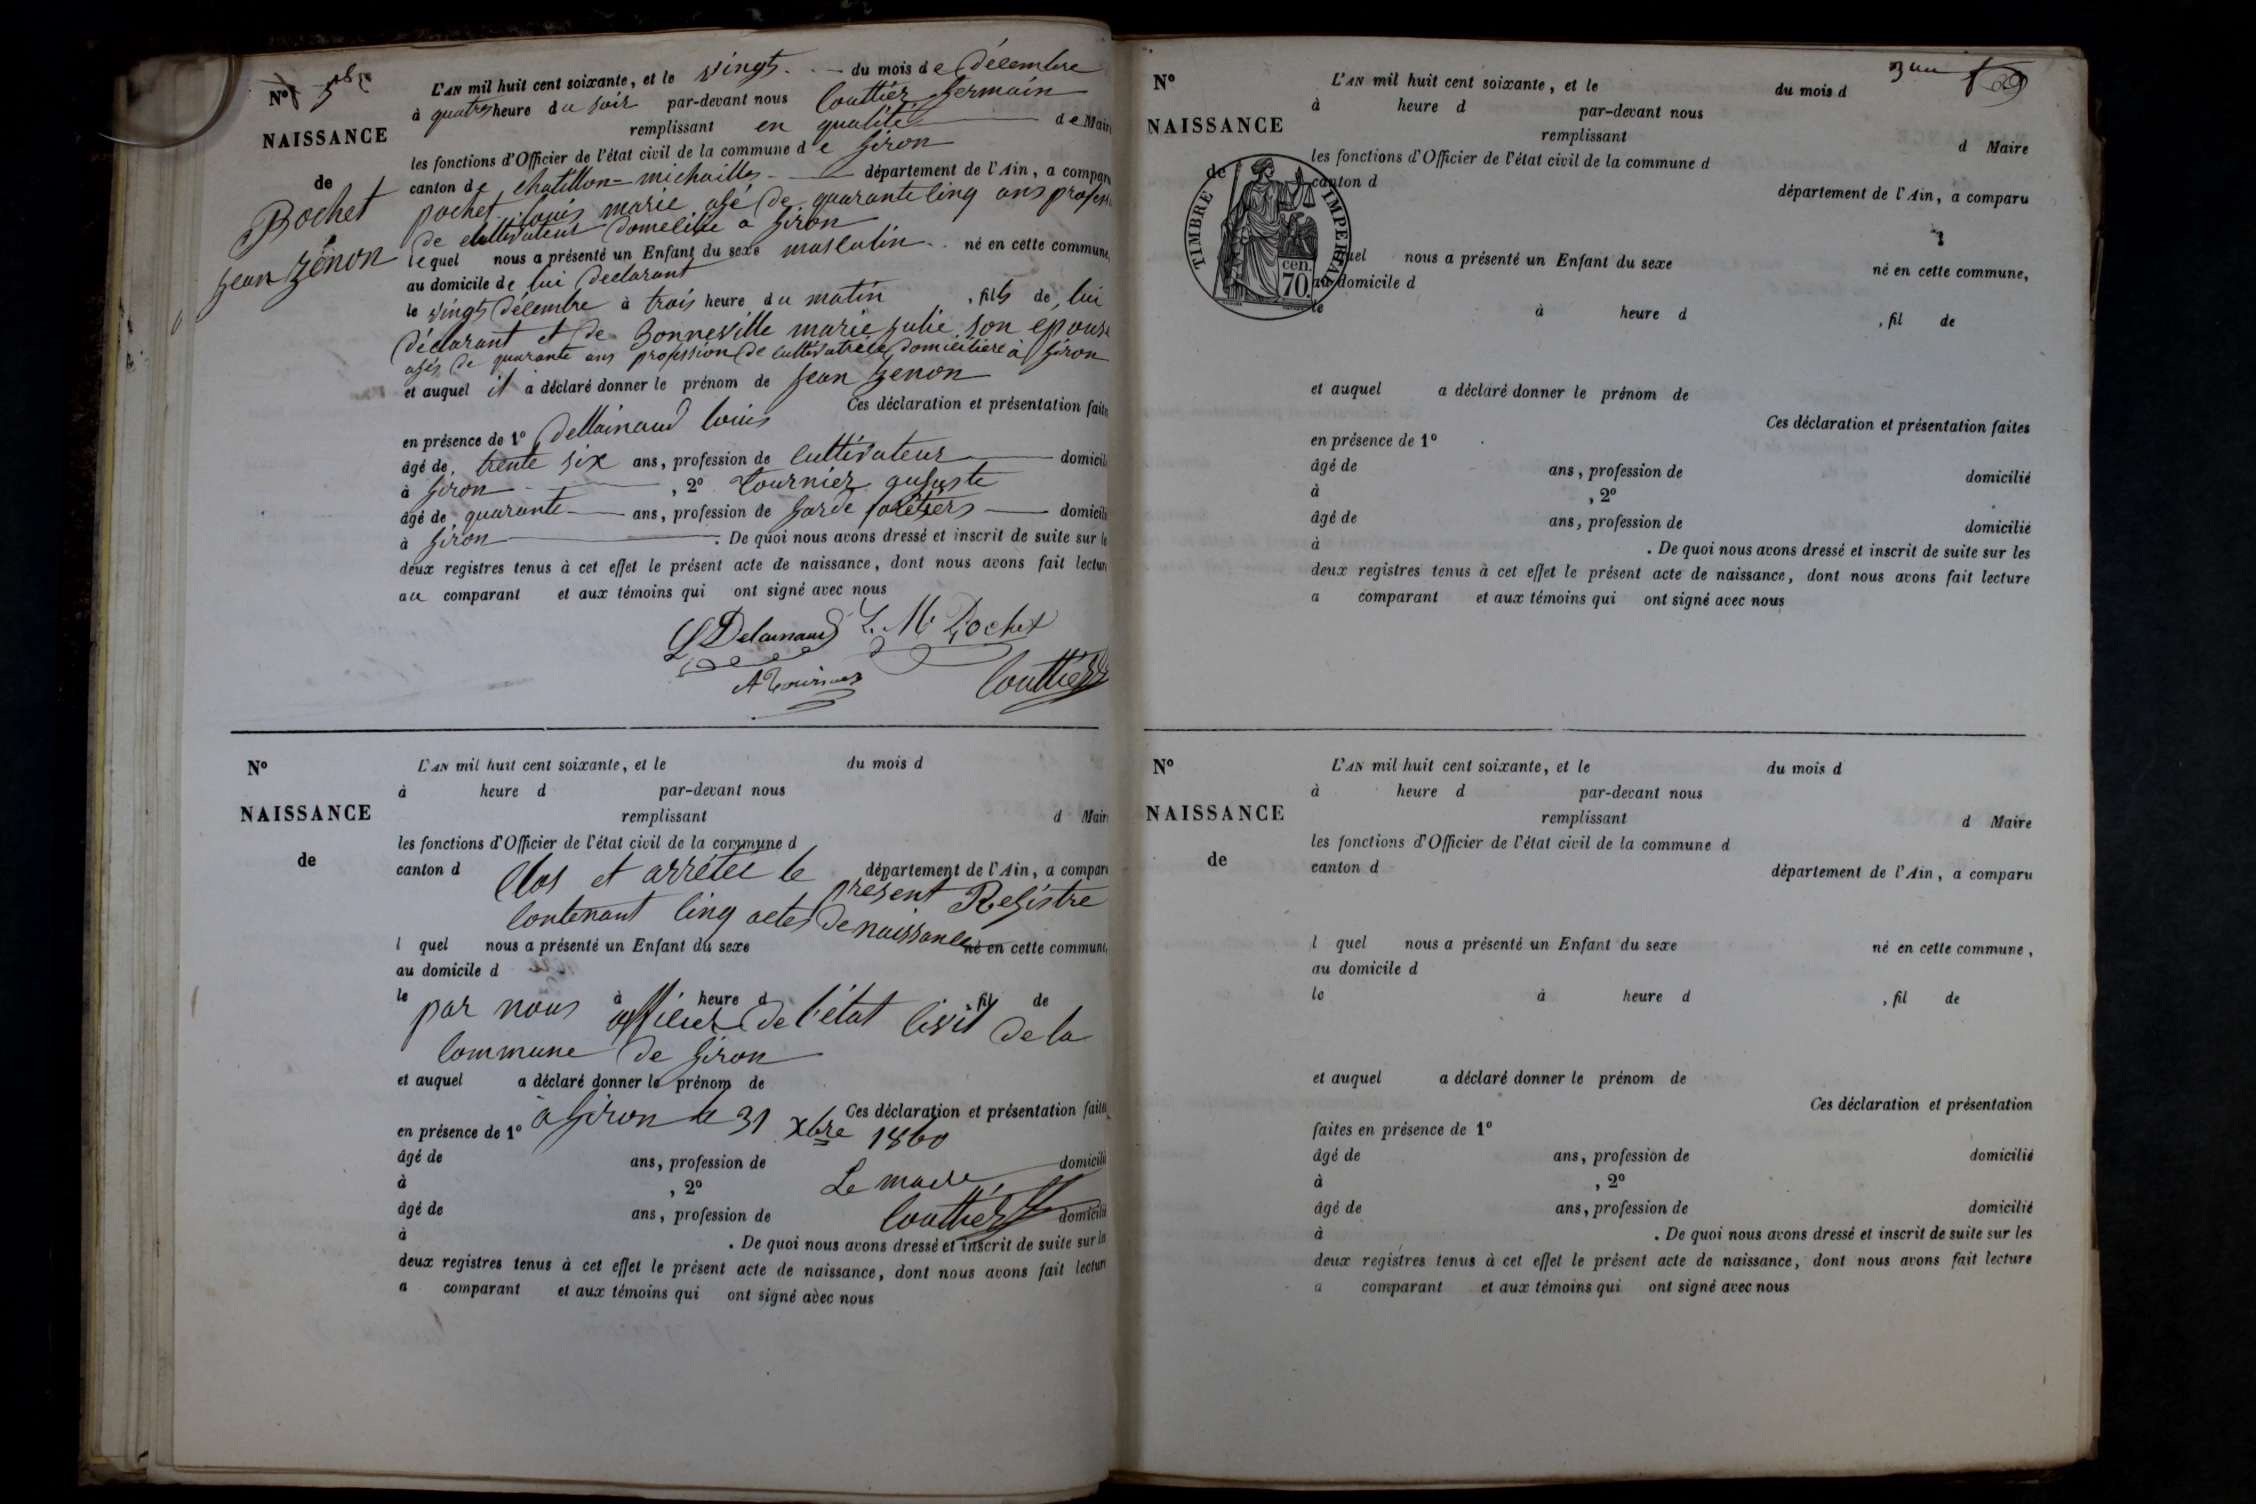 N° 5
NAISSANCE
de
Pochet
jean zénon
L'AN mil huit cent soixante, et le vingt du mois de décembre
à quatres heure du soir par-devant nous Couttiez germain
remplissant en qualité de Maire
les fonctions d'Officier de l'état civil de la commune de giron
canton de chatillon-michailles département de l'Ain, a comparu
pochet louis marie agé de quarante cinq ans profession
de cultivateur domicilié a giron
lequel nous a présenté un Enfant du sexe masculin né en cette commune,
au domicile de lui déclarant
le vingt décembre à trois heure du matin, fils de lui
déclarant et de Bonneville marie julie son épouse
agés de quarante ans profession de cultivatrice domiciliere à giron
et auquel il a déclaré donner le prénom de jean zenon
Ces déclaration et présentation faites
en présence de 1° dellainaud louis
âgé de trente six ans, profession de cultivateur domicilié
à giron, 2° tournier auguste
âgé de quarante ans, profession de garde forétiers domicilié
à giron. De quoi nous avons dressé et inscrit de suite sur les
deux registres tenus à cet effet le présent acte de naissance, dont nous avons fait lecture
au comparant et aux témoins qui ont signé avec nous
L Delainaud L. M. Pochet
A Tournier Couttiez
N°
NAISSANCE
de
L'AN mil huit cent soixante, et le du mois d
à heure d par-devant nous
remplissant d Maire
les fonctions d'Officier de l'état civil de la commune d
canton d département de l'Ain, a comparu
Clos et arrétéé le présent Régistre
contenant cinq actes de naissance
l quel nous a présenté un Enfant du sexe né en cette commune,
au domicile d
le à heure d, fil de
par nous officier de l'état civil de la
commune de giron
et auquel a déclaré donner le prénom de
Ces déclaration et présentation faites
à giron le 31 xbre 1860
en présence de 1°
âgé de ans, profession de domicilié
à, 2°
Le maire
âgé de ans, profession de domicilié
Couttiez
à. De quoi nous avons dressé et inscrit de suite sur les
deux registres tenus à cet effet le présent acte de naissance, dont nous avons fait lecture
a comparant et aux témoins qui ont signé avec nous
N°
NAISSANCE
de
TIMBRE IMPERIAL
cen. 70.
L'AN mil huit cent soixante, et le du mois d
à heure d par-devant nous
remplissant d Maire
les fonctions d'Officier de l'état civil de la commune d
canton d département de l'Ain, a comparu
quel nous a présenté un Enfant du sexe né en cette commune,
au domicile d
le à heure d, fil de
et auquel a déclaré donner le prénom de
Ces déclaration et présentation faites
en présence de 1°
âgé de ans, profession de domicilié
à, 2°
âgé de ans, profession de domicilié
à. De quoi nous avons dressé et inscrit de suite sur les
deux registres tenus à cet effet le présent acte de naissance, dont nous avons fait lecture
a comparant et aux témoins qui ont signé avec nous
N°
NAISSANCE
de
L'AN mil huit cent soixante, et le du mois d
à heure d par-devant nous
remplissant d Maire
les fonctions d'Officier de l'état civil de la commune d
canton d département de l'Ain, a comparu
l quel nous a présenté un Enfant du sexe né en cette commune,
au domicile d
le à heure d, fil de
et auquel a déclaré donner le prénom de
Ces déclaration et présentation
faites en présence de 1°
âgé de ans, profession de domicilié
à, 2°
âgé de ans, profession de domicilié
à. De quoi nous avons dressé et inscrit de suite sur les
deux registres tenus à cet effet le présent acte de naissance, dont nous avons fait lecture
a comparant et aux témoins qui ont signé avec nous